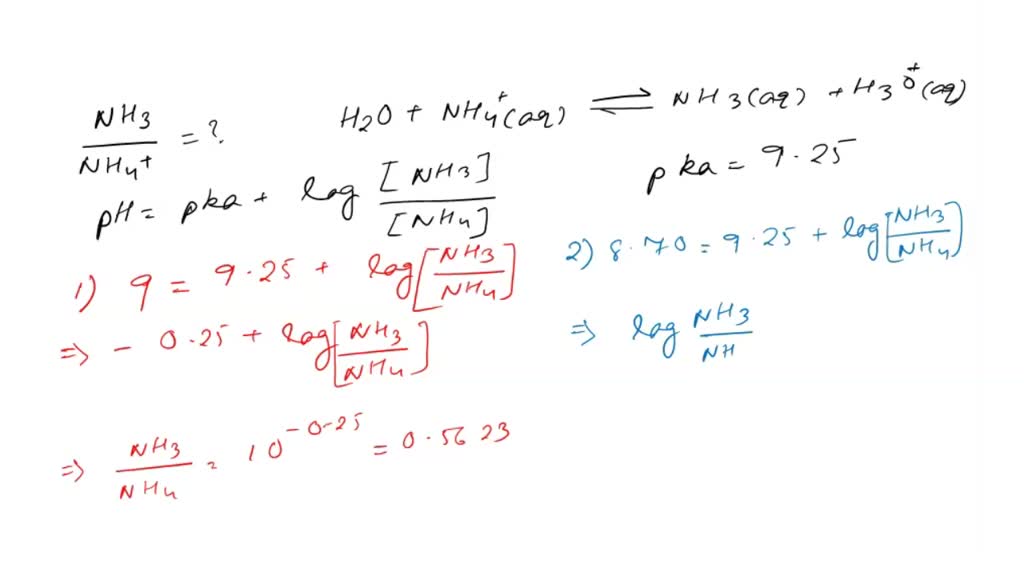 NH3/NH4+ = ?
H2O + NH4+(aq) ⇌ NH3(aq) + H3O+(aq)
pH = pka + log [NH3]/[NH4]
pka = 9.25
1) 9 = 9.25 + log[NH3/NH4]
⇒ - 0.25 + log[NH3/NH4]
⇒ NH3/NH4 = 10^-0.25 = 0.5623
2) 8.70 = 9.25 + log[NH3/NH4]
⇒ log NH3/NH